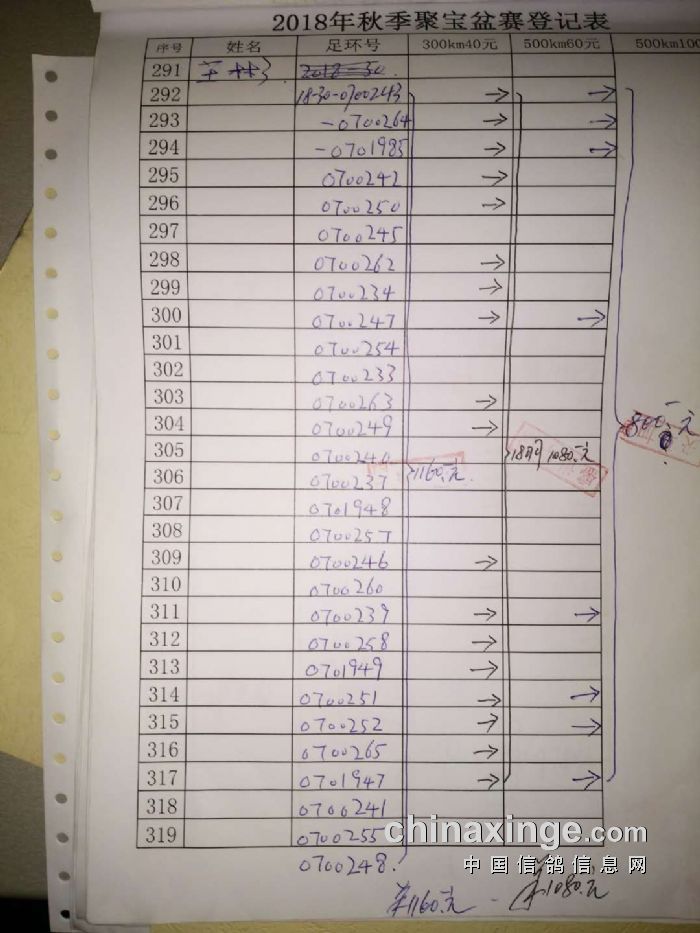 2018年秋季聚宝盆赛登记表
序号 姓名 足环号 300km40元 500km60元 500km100
291 王林
292 18-30-0700243 → →
293 -0700264 → →
294 -0701985 → →
295 0700242 →
296 0700250 →
297 0700245
298 0700262 →
299 0700234 →
300 0700247 → →
301 0700254
302 0700233
303 0700263 →
304 0700249 →
305 0700240 18羽 1080.元
306 0700237 1160.元
307 0701948
308 0700257
309 0700246 →
310 0700260
311 0700239 → →
312 0700258 →
313 0701949 →
314 0700251 → →
315 0700252 → →
316 0700265 →
317 0701947 → →
318 0700241
319 0700255
0700248.
1160.元 - 1080.元
chinaxinge.com
中国信鸽信息网